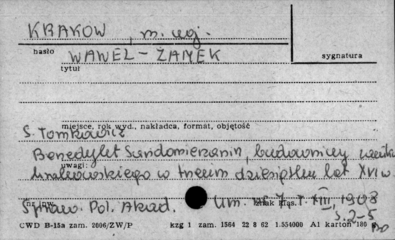 KRAKÓW, m. woj.
hasło WAWEL - ZAMEK
sygnatura
tytuł
miejsce, rok wyd., nakładca, format, objętość
S. Tomkiewicz
Benedykt Sandomierzanin, budowniczy
uwagi krakowskiego w trzecim dziesiątku lat XVI w.
Spraw. Pol. Akad. Um. T. XIII, 1908
s. 2-5
CWD B-15a zam. 2606/ZW/P kzg 1 zam. 1564 22 8 62 1.554000 A1 karton